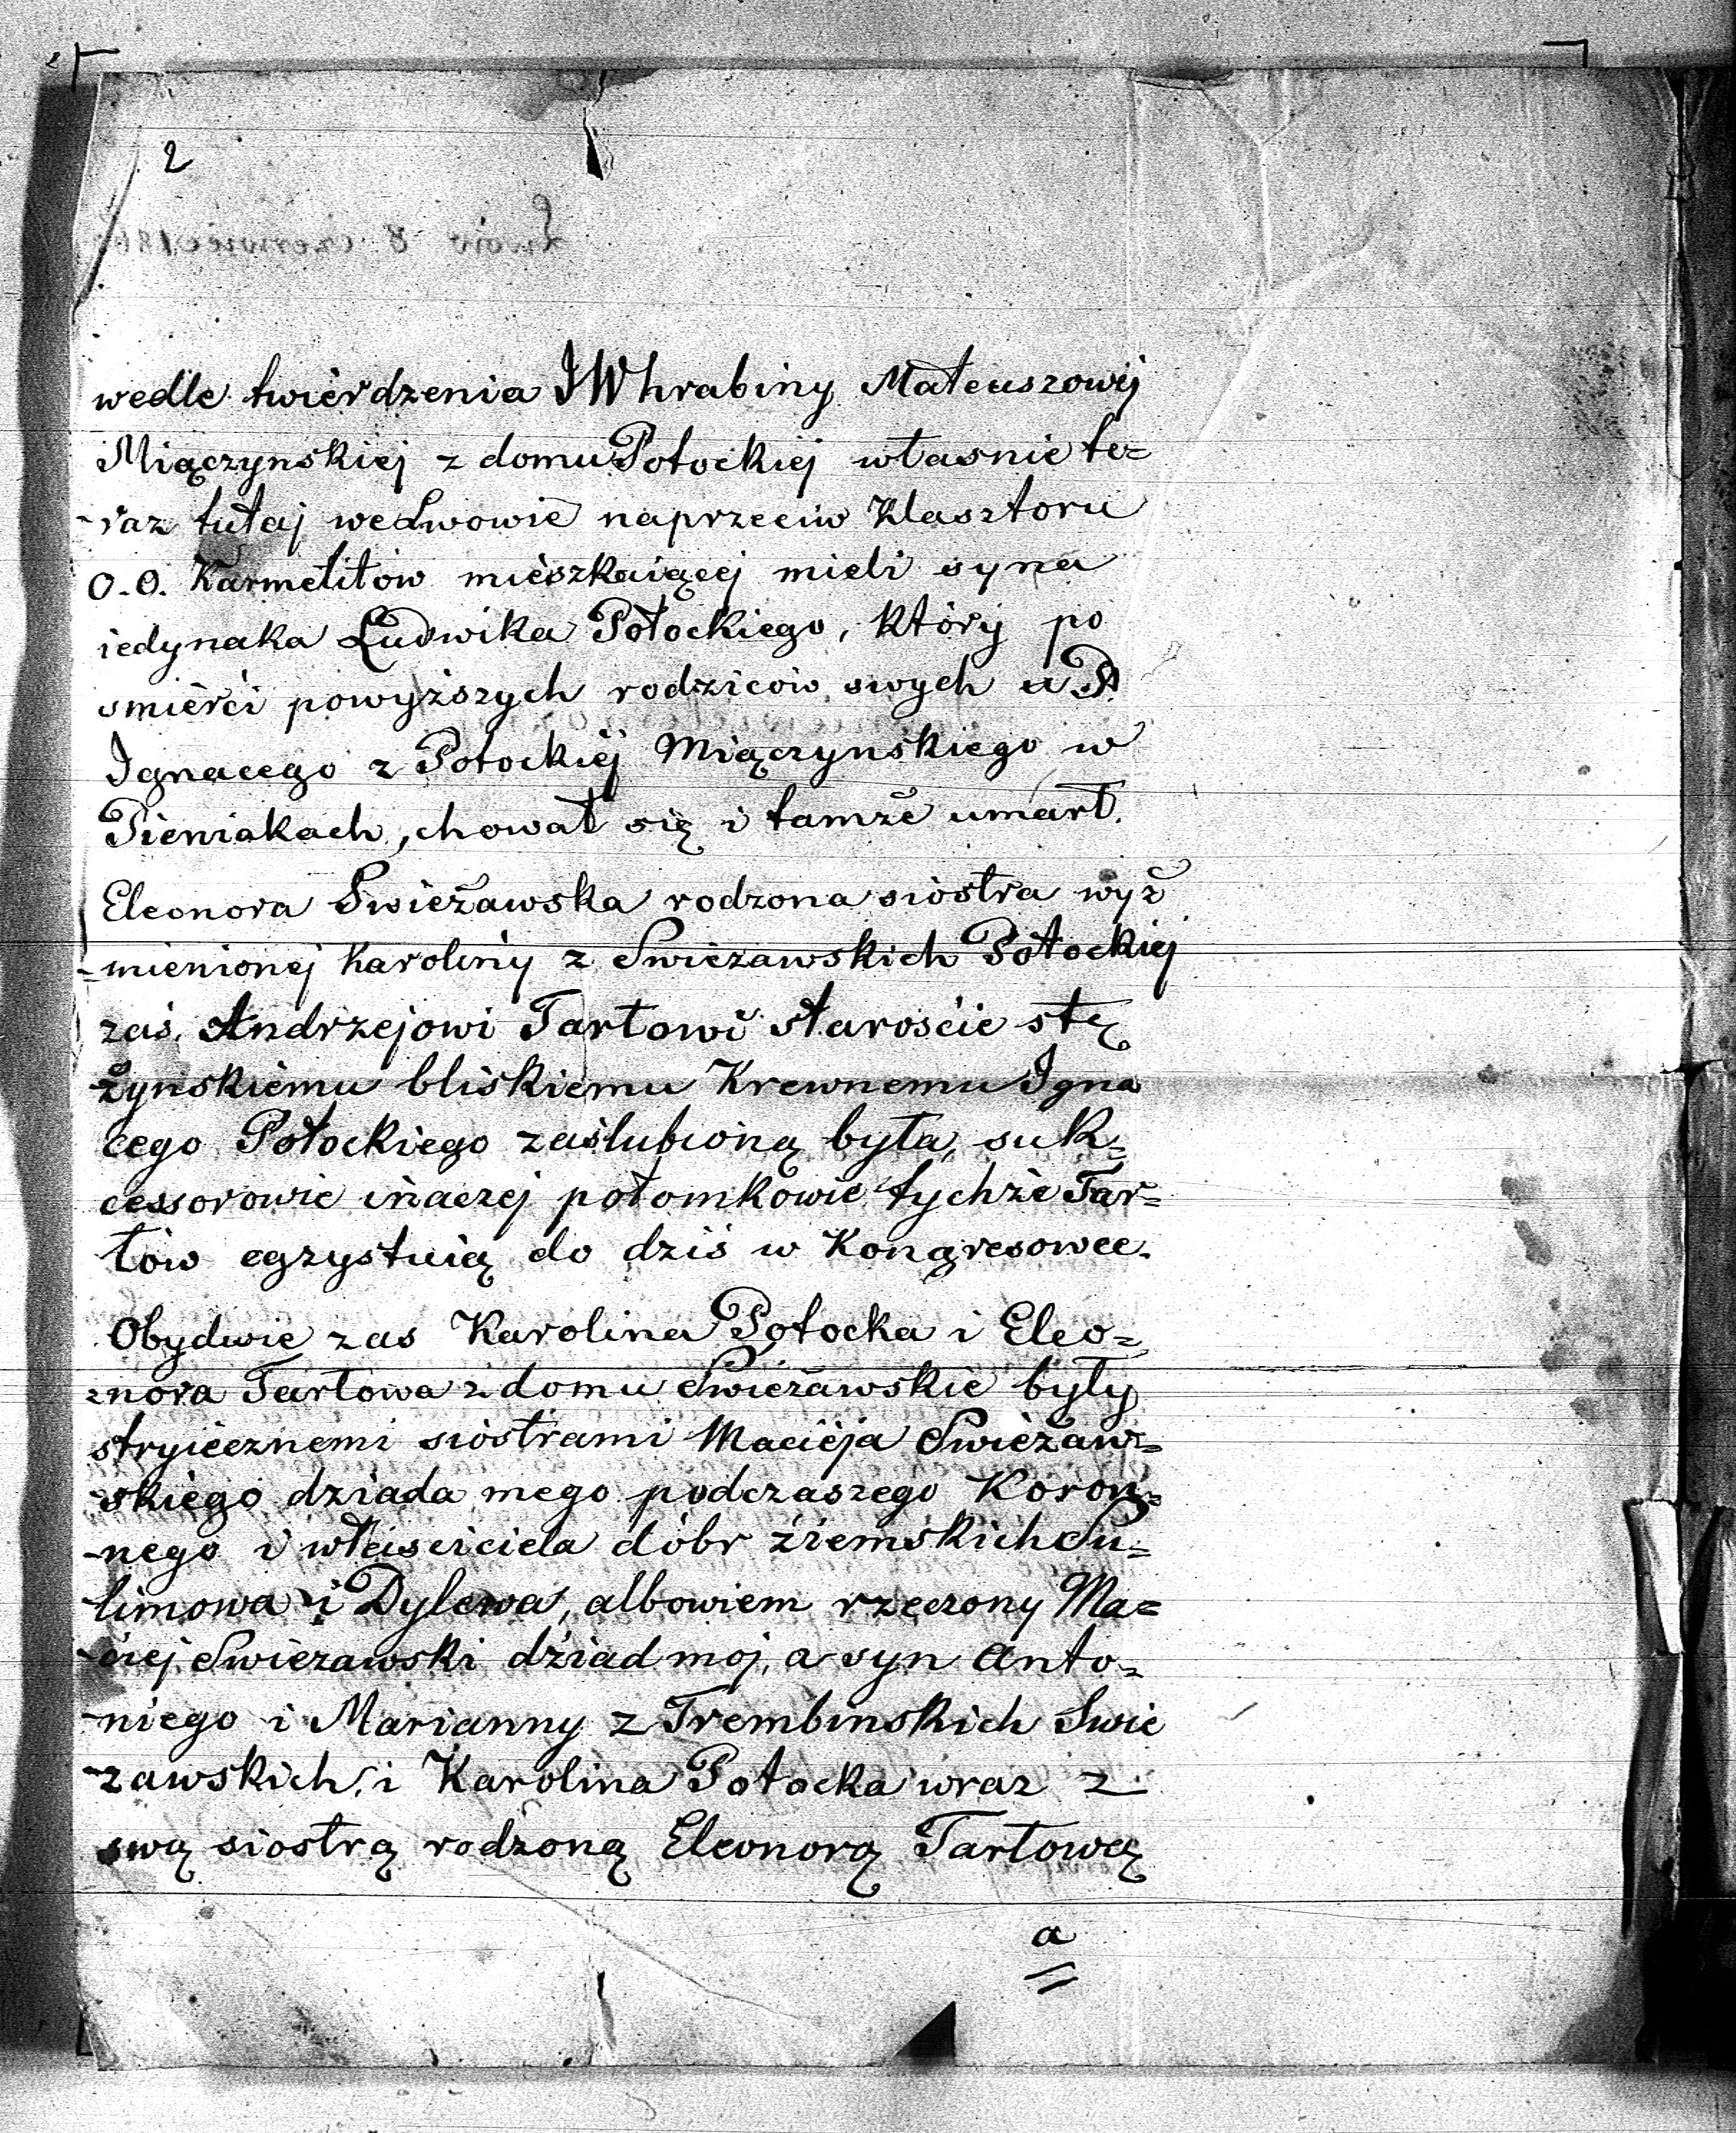 2
wedle twierdzenia JW hrabiny Mateuszowej
Miączynskiej z domu Potockiej własnie te=
-raz tutaj we Lwowie naprzeciw Klasztoru
O.O. Karmelitów mieszkaiącej mieli syna
iedynaka Ludwika Potockiego, który po
smierci powyższych rodziców swych u P.
Ignacego z Potockiej Miączynskiego w
Pieniakach, chował się i tamże umarł.
Eleonora Swieżawska rodzona siostra wyż
=mienionej Karoliny z Swieżawskich Potockiej
zaś Andrzejowi Tarłowi Staroście stę
-żynskiemu bliskiemu Krewnemu Igna
cego Potockiego zaślubioną była, suk=
cessorowie inaczej potomkowie tychże Tar=
łów egzystuią do dziś w Kongresowce.
Obydwie zas Karolina Potocka i Eleo=
=nora Tarłowa z domu Swieżawskie były
stryiecznemi siostrami Macieja Swieżaw=
-skiego dziada mego podczaszego Koron=
-nego i własciciela dóbr ziemskich Su=
limowa i Dylewa, albowiem rzeczony Ma=
-ciej Swieżawski dziad moj, a syn Anto=
-niego i Marianny z Trembinskich Swie
-zawskich, i Karolina Potocka wraz z
swą siostrą rodzoną Eleonorą Tarłową
a